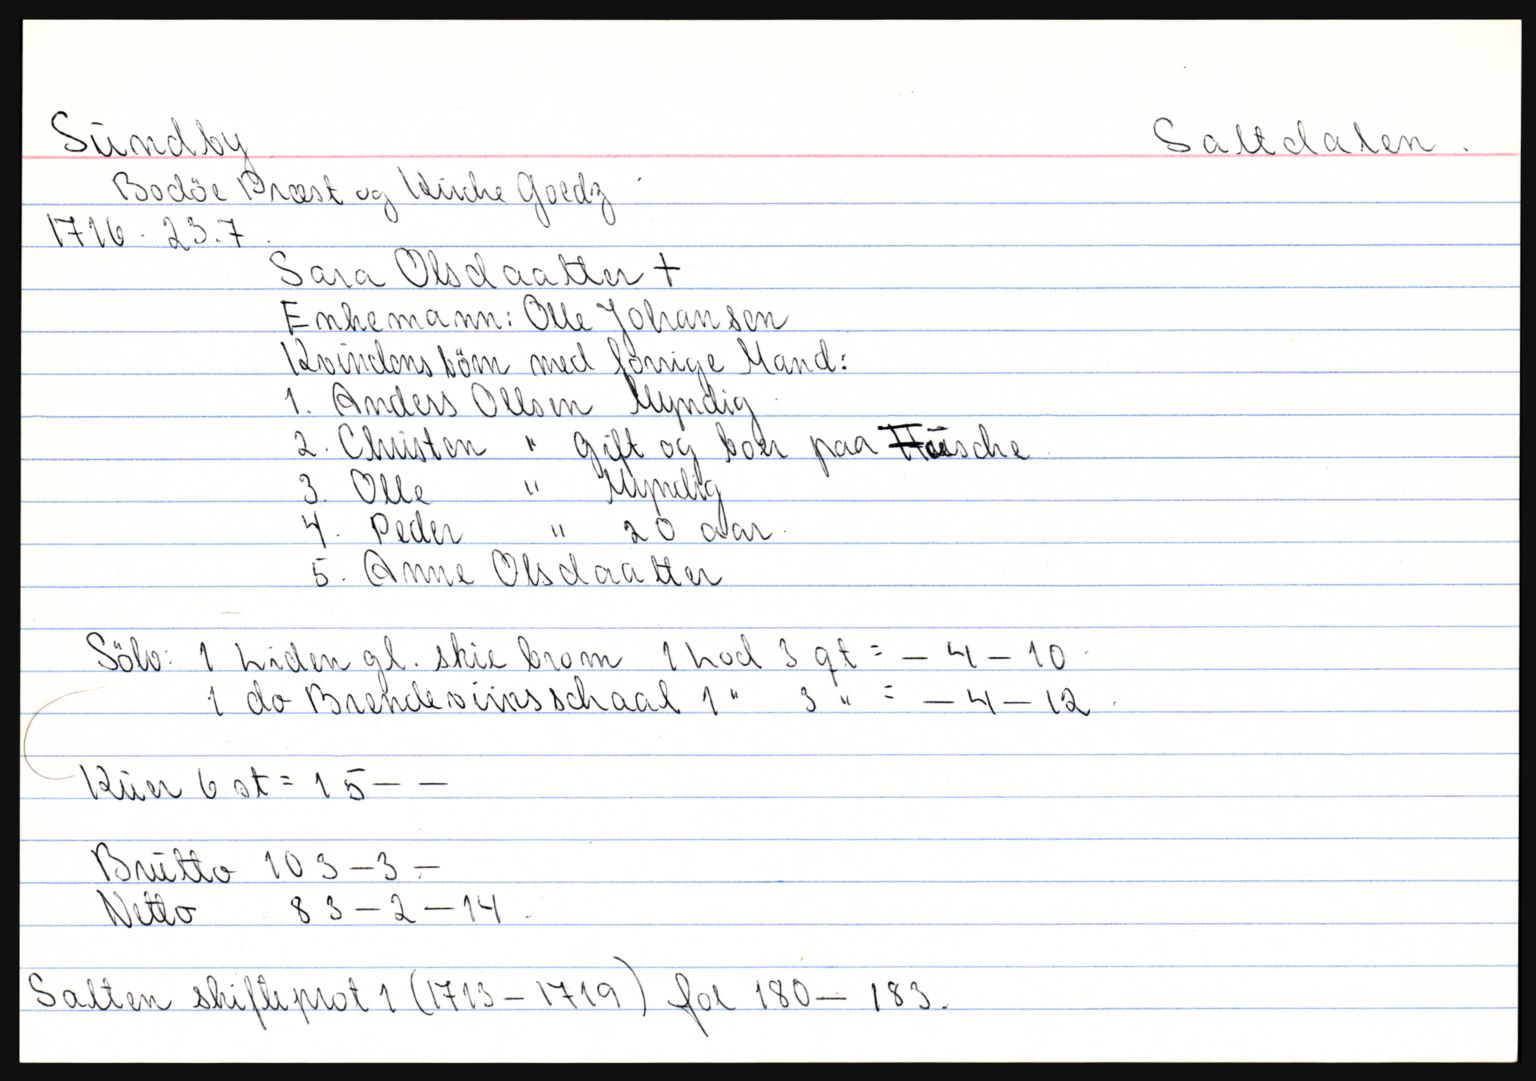 Sündby Saltdalen.
Bodöe Præst og Kirche Goedz
1716. 23.7.
Sara Olsdaatter +
Enkemann: Olle Johansen
Kvindens börn med forrige Mand:
1. Anders Ollsen Myndig
2. Christen " gift og boer paa Hüsche
3. Olle " Myndig
4. Peder " 20 aar.
5. Anne Olsdaatter
Sölv: 1 Liden gl. skie brom 1 Lod 3 qt = – 4 – 10
1 do Brendeviinsschaal 1 " 3 " = – 4 – 12.
Küer 6 st = 15 – –
Brütto 103 – 3 –
Netto 83 – 2 – 14.
Salten skifteprot 1 (1713 – 1719) fol 180 – 183.